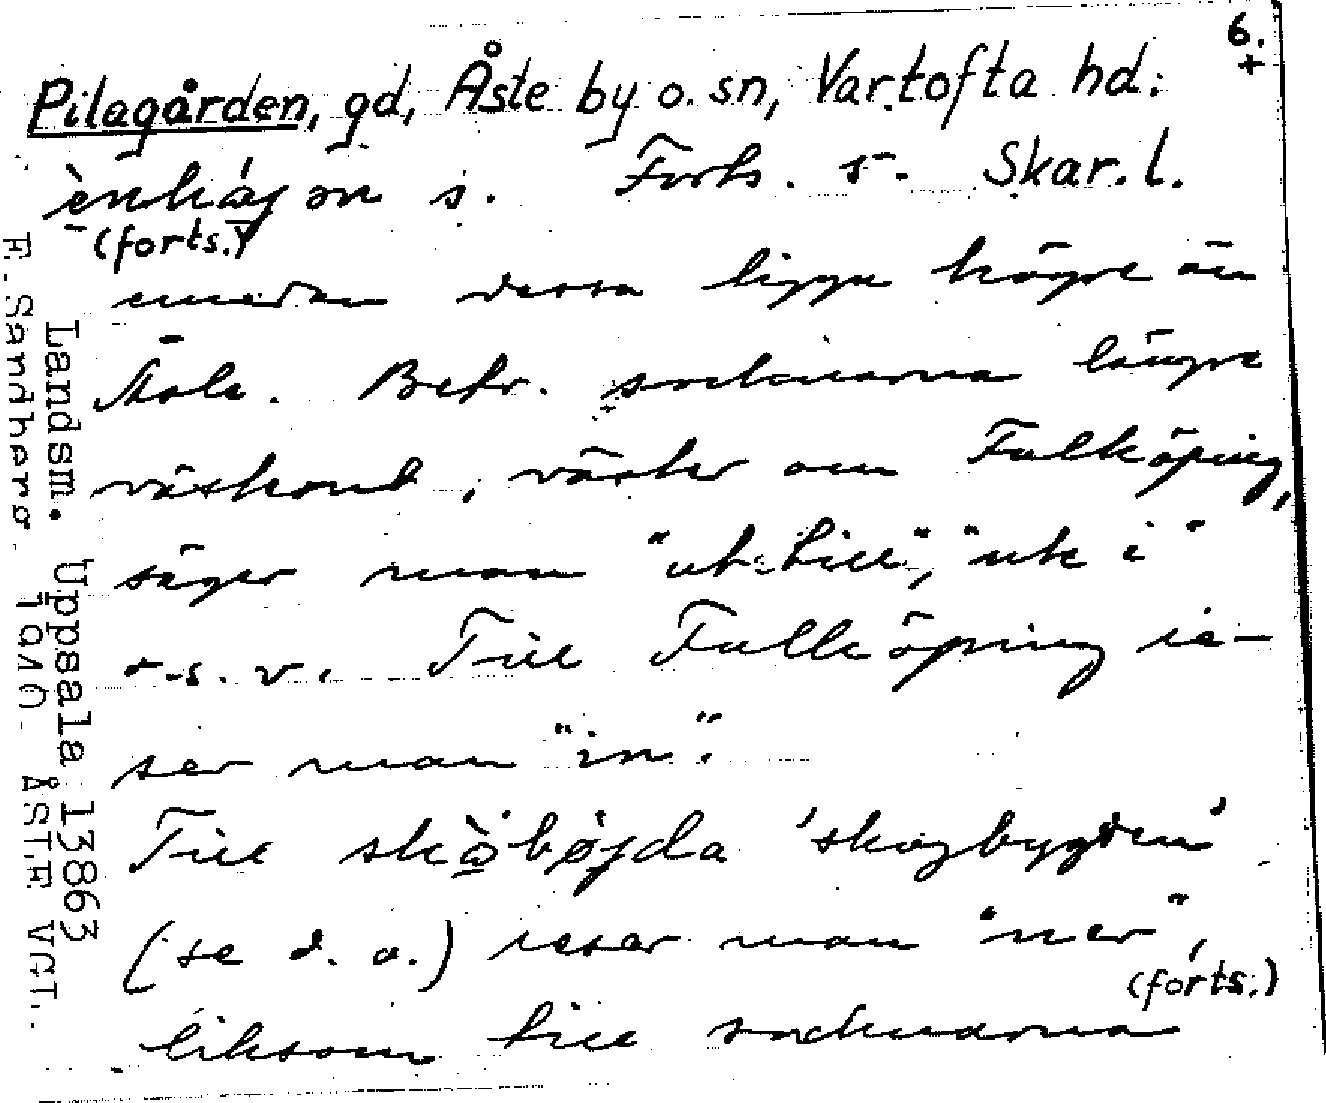 6.
+
Pilagården, gd, Åste by o. sn, Vartofta hd.
s. Forts. 5. Skar. l.
(forts.)
medan dessa ligga högre än
Åsle. Betr. socknarna längre
västerut, väster om Falköping,
säger man "ut till", "ute i"
o.s.v. Till Falköping re-
ser man "in".
Till skòbøjda 'skogbygden'
(se d. o.) reser man "ner",
(forts.)
liksom till socknarna
Landsm. Uppsala 13863
F. Sandberg 1940 ÅSLE VGT.